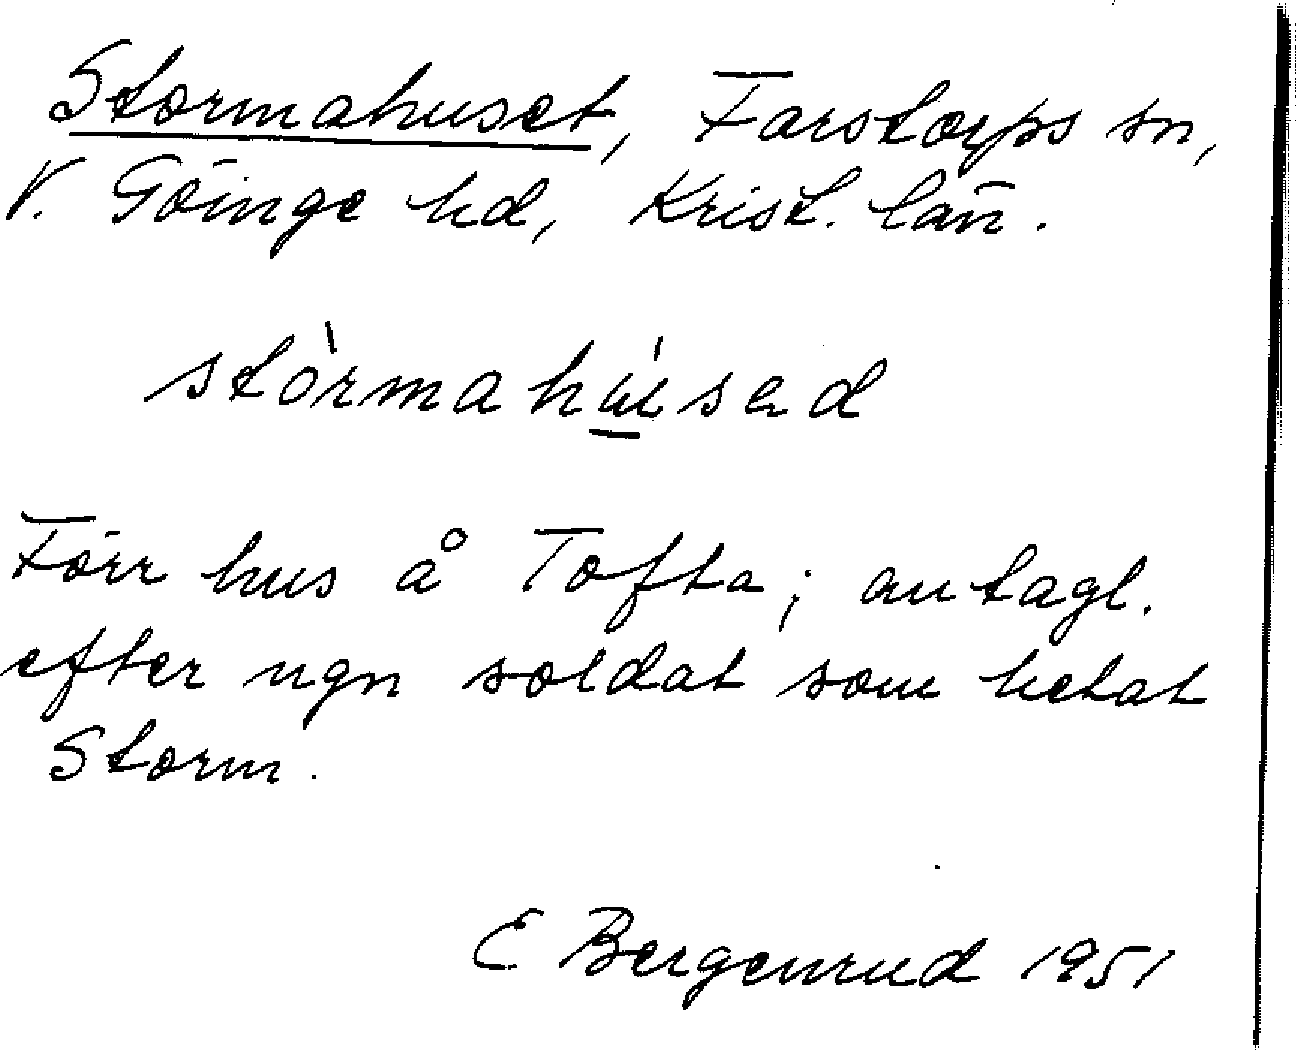 Stormahuset, Farstorps sn,
V. Göinge hd, Krist. län.
stòrmahúsəd
Förr hus å Tofta; antagl.
efter ngn soldat som hetat
Storm.
E Bergenrud 1951